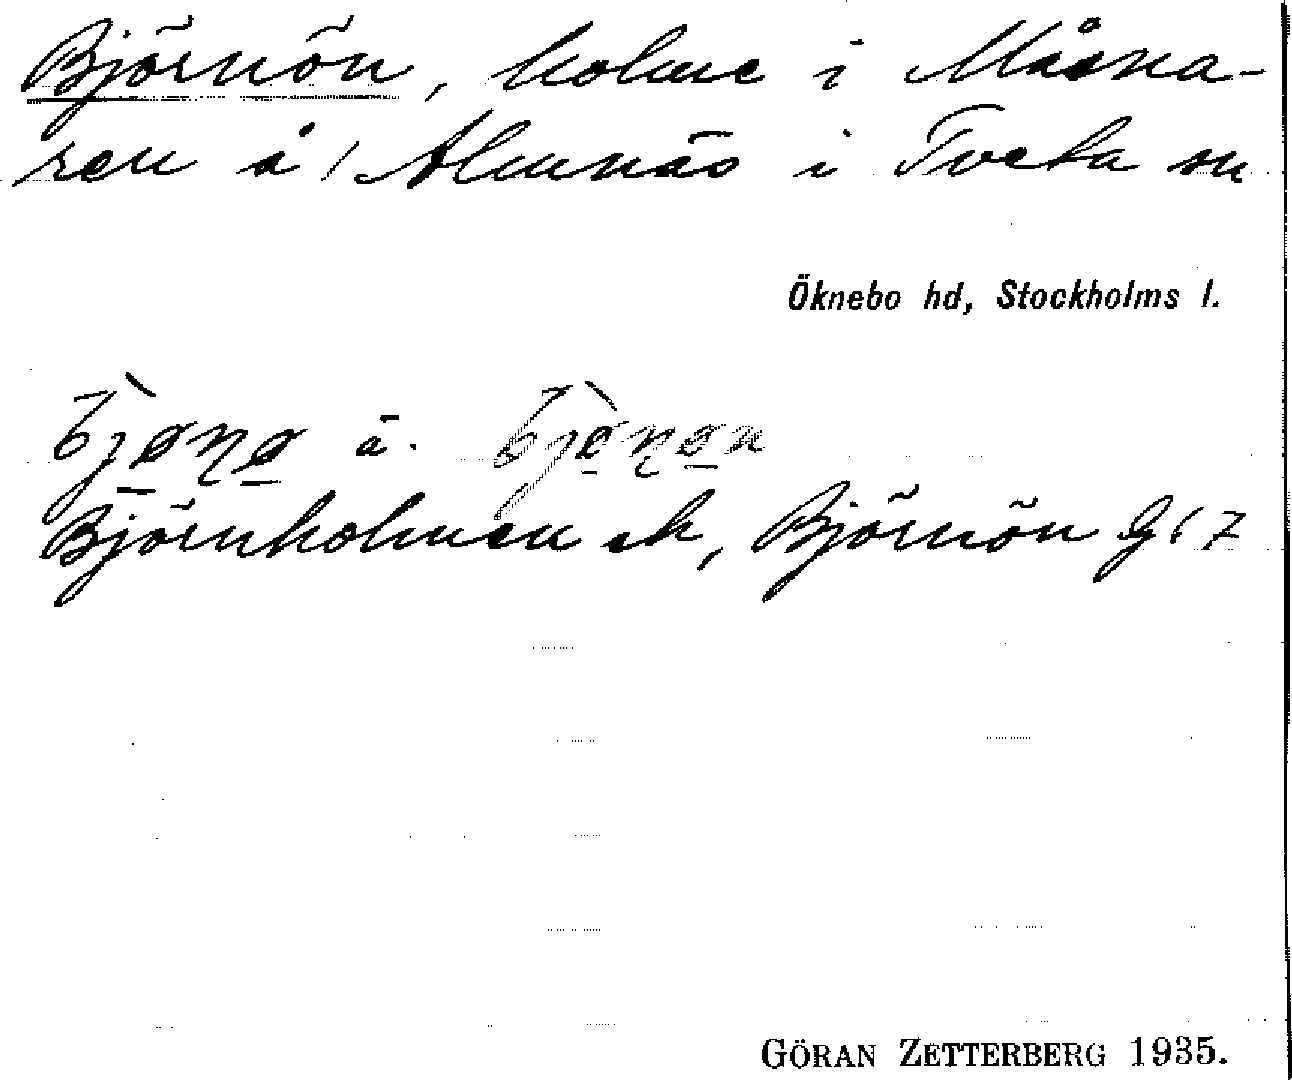 Björnön, holme i Måsna-
ren å Almnäs i Tveta sn
Öknebo hd, Stockholms l.
Björnholmen ek, Björnön G 67
GÖRAN ZETTERBERG 1935.